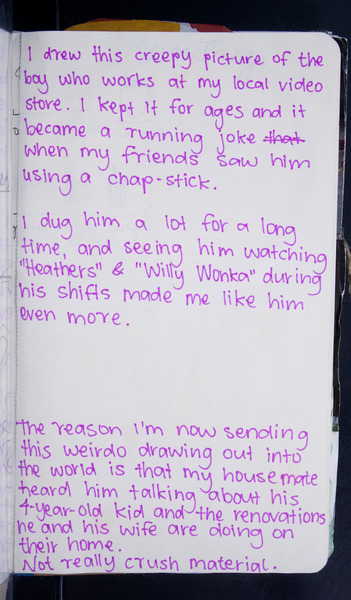 I drew this creepy picture of the
boy who works at my local video
store. I kept it for ages and it
became a running joke that
when my friends saw him
using a chap-stick.
I dug him a lot for a long
time, and seeing him watching
"Heathers" & "Willy Wonka" during
his shifts made me like him
even more.
The reason I'm now sending
this weirdo drawing out into
the world is that my housemate
heard him talking about his
4-year-old kid and the renovations
he and his wife are doing on
their home.
Not really crush material.